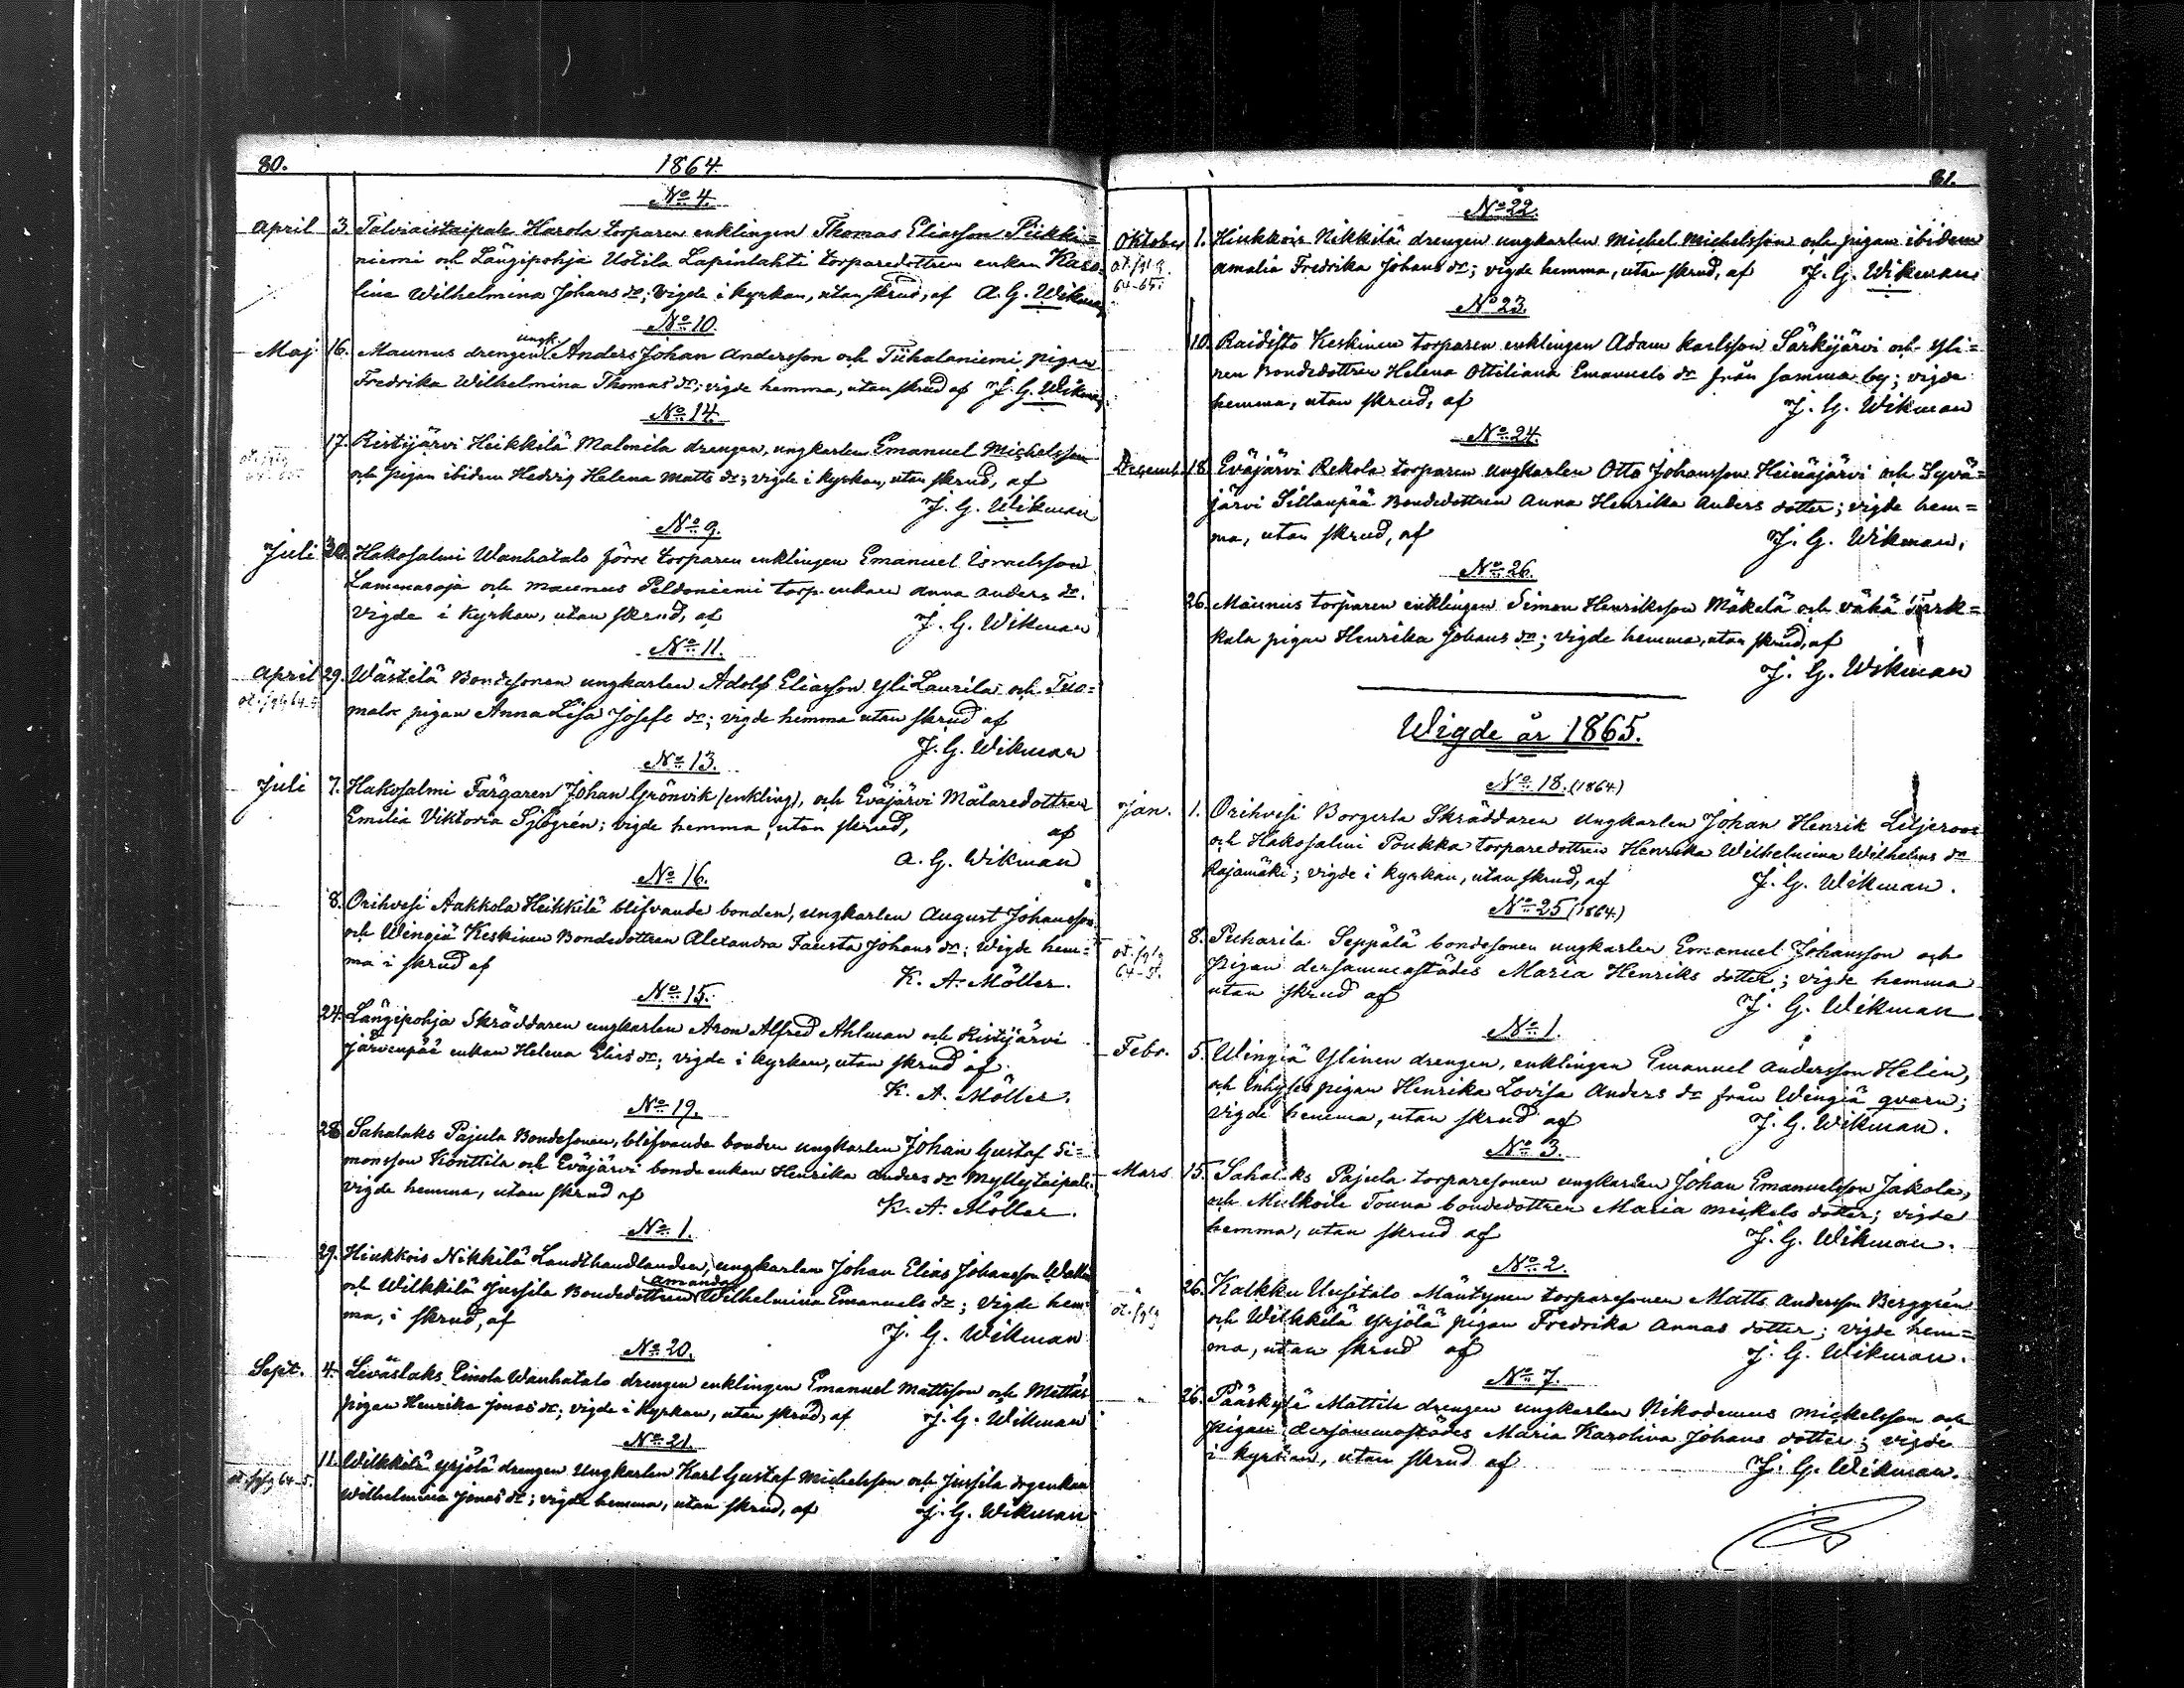 80.
1864.
No 4.
April 3. Talviaistaipale Harola torparen enklingen Thomas Eliasson Pukki=
niemi och Längipohja Uotila Lapinlahti torparedottren enkan Karo=
lina Wilhelmina Johans dr; vigde i kyrkan, utan skrud, af A. G. Wikman
No 10.
Maj 16. Maunus drengen ungk. Anders Johan Andersson och Tiihalaniemi pigan
Fredrika Wilhelmina Thomas dr; vigde hemma, utan skrud af J. G. Wikman
No 14.
17. Ristijärvi Heikkilä Malmila drengen, ungkarlen Emanuel Michelsson
och pigan ibidem Hedvig Helena Matts dr; vigde i kyrkan, utan skrud, af
J. G. Wikman
No 9.
Juli Hakosalmi Wanhatalo förre torparen enklingen Emanuel Israelsson
Lammasoja och Maunus Peldoniemi torp. enkan Anna Anders dr.
vigde i kyrkan, utan skrud, af J. G. Wikman
No 11.
April 29. Wästilä Bondesonen ungkarlen Adolf Eliasson Yli Laurila och Tuo=
mala pigan Anna Lisa Josefs dr; vigde hemma utan skrud af
J. G. Wikman
No 13.
Juli 7. Hakosalmi Färgaren Johan Grönvik (enkling), och Eväjärvi Målaredottren
Emilia Viktoria Sjögrén; vigde hemma, utan skrud, af
A. G. Wikman
No 16.
8. Orihvesi Aakkola Heikkilä blifvande bonden, ungkarlen August Johansson
och Wingiä Keskinen Bondedottren Alexandra Fausta Johans dr; vigde hem=
ma i skrud af K. A. Möller.
No 15.
24. Längipohja Skräddaren ungkarlen Aron Alfred Ahlman och Ristijärvi
Järvenpää enkan Helena Elias dr; vigde i kyrkan, utan skrud af
K. A. Möller.
No 19.
28. Sahalaks Pajula Bondesonen, blifvande bonden ungkarlen Johan Gustaf Si=
monsson Konttila och Eväjärvi bonde enkan Henrika Anders dr Myllytaipale
vigde hemma, utan skrud af K. A. Möller.
No 1.
29. Hinkkois Nikkilä Landthandlanden, ungkarlen Johan Elias Johansson Wallin
och Wilkkilä Jussila Bondedottren Amanda Wilhelmina Emanuels dr; vigde hem=
ma, i skrud, af J. G. Wikman
No 20.
Sept. 4. Liväslaks Einola Wanhatalo drengen enklingen Emanuel Mattsson och
pigan Henrika Jonas dr; vigde i kyrkan, utan skrud, af J. G. Wikman
No 21.
öt. fglg 64-5.
11. Wilkkilä Yrjölä drengen ungkarlen Karl Gustaf Michelsson och Jussila
Wilhelmina Jonas dr; vigde hemma, utan skrud, af J. G. Wikman
81.
No 22.
Oktober 1. Hinkkois Nikkilä drengen ungkarlen Michel Michelsson och pigan ibidem
öt. fglg. 64-65.
Amalia Fredrika Johans dr; vigde hemma, utan skrud, af J. G. Wikman
No 23.
10. Raidisto Keskinen torparen enklingen Adam Karlsson Särkijärvi och Yli=
nen Bondedottren Helena Ottiliana Emanuels dr från samma by; vigde
hemma, utan skrud, af J. G. Wikman
No 24.
Decemb. 18. Eväjärvi Rekola torparen ungkarlen Otto Johansson Heinäjärvi och Syvä=
järvi Sillanpää Bondedottren Anna Henrika Anders dotter; vigde hem=
ma, utan skrud, af J. G. Wikman.
No 26.
26. Maunus torparen enklingen Simon Henriksson Mäkelä och Väkä Turk=
kala pigan Henrika Johans dr; vigde hemma, utan skrud, af
J. G. Wikman
Wigde år 1865.
No 18. (1864)
Jan. 1. Orihvesi Borgerla Skräddaren ungkarlen Johan Henrik Liljeroos
och Hakosalmi Poukka torparedottren Henrika Wilhelmina Wilhelms dr
Rajamäki; vigde i kyrkan, utan skrud, af J. G. Wikman.
No 25 (1864)
öt. fglg 64-5.
8. Puharila Seppälä bondesonen ungkarlen Emanuel Johansson och
pigan dersammastädes Maria Henriks dotter; vigde hemma
utan skrud af J. G. Wikman.
No 1.
Febr. 5. Wingiä Ylinen drengen, enklingen Emanuel Andersson Helin,
och Inhyses pigan Henrika Lovisa Anders dr från Wingiä qvarn;
vigde hemma, utan skrud af J. G. Wikman.
No 3.
Mars 15. Sahalaks Pajula torparesonen ungkarlen Johan Emanuelsson Jakola,
och Mulkoila Touna bondedottren Maria Mickels dotter; vigde
hemma, utan skrud af J. G. Wikman.
No 2.
öt. fglg
26. Kalkku Uusitalo Mäntynen torparesonen Matts Andersson Berggrén
och Wilkkilä Yrjölä pigan Fredrika Annas dotter; vigde hem=
ma, utan skrud af J. G. Wikman.
No 7.
26. Pääskylä Mattila drengen ungkarlen Nikodemus Mickelsson och
pigan dersammastädes Maria Karolina Johans dotter; vigde
i kyrkan, utan skrud af J. G. Wikman.